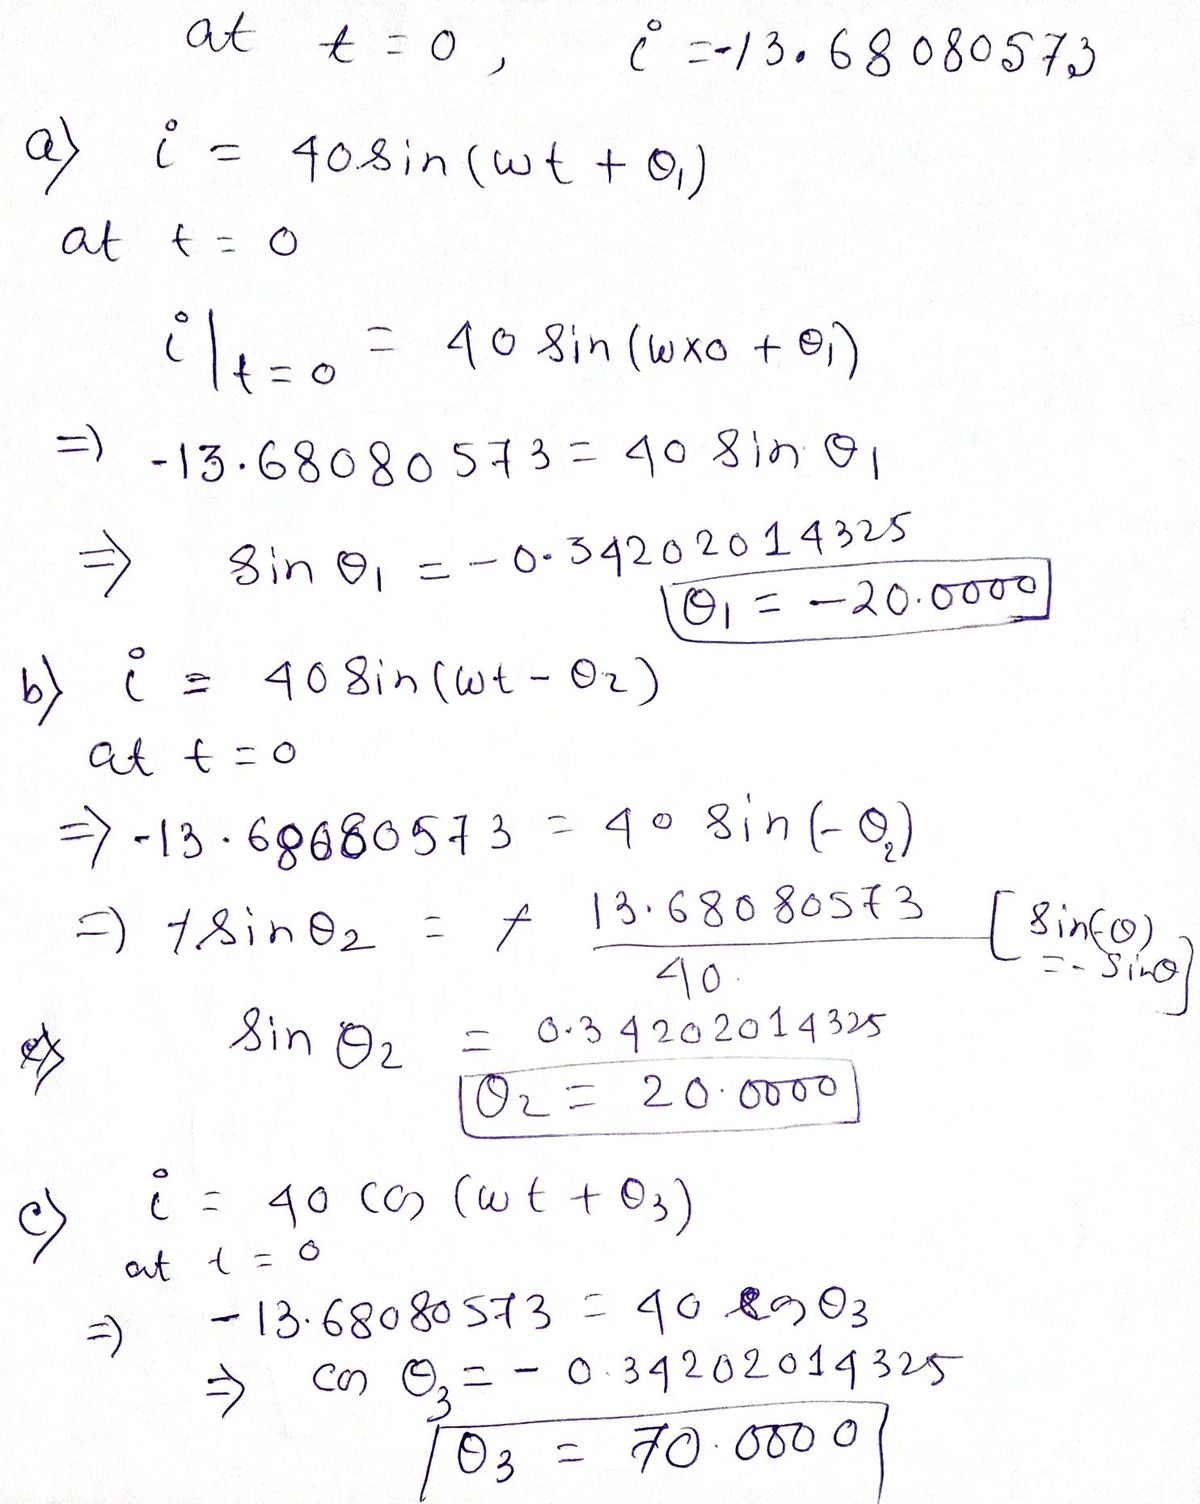 at t = 0, i = -13.68080573
a) i = 40 sin(ωt + θ₁)
at t = 0
i|t=0 = 40 sin(ω×0 + θ₁)
⇒ -13.68080573 = 40 sin θ₁
⇒ sin θ₁ = -0.34202014325
θ₁ = -20.0000
b) i = 40 sin(ωt - θ₂)
at t = 0
⇒ -13.68080573 = 40 sin(-θ₂)
⇒ + sin θ₂ = + 13.68080573 / 40 [sin(-θ) = - sin θ]
sin θ₂ = 0.34202014325
θ₂ = 20.0000
c) i = 40 cos (ωt + θ₃)
at t = 0
⇒ -13.68080573 = 40 cos θ₃
⇒ cos θ₃ = - 0.34202014325
θ₃ = 70.0000